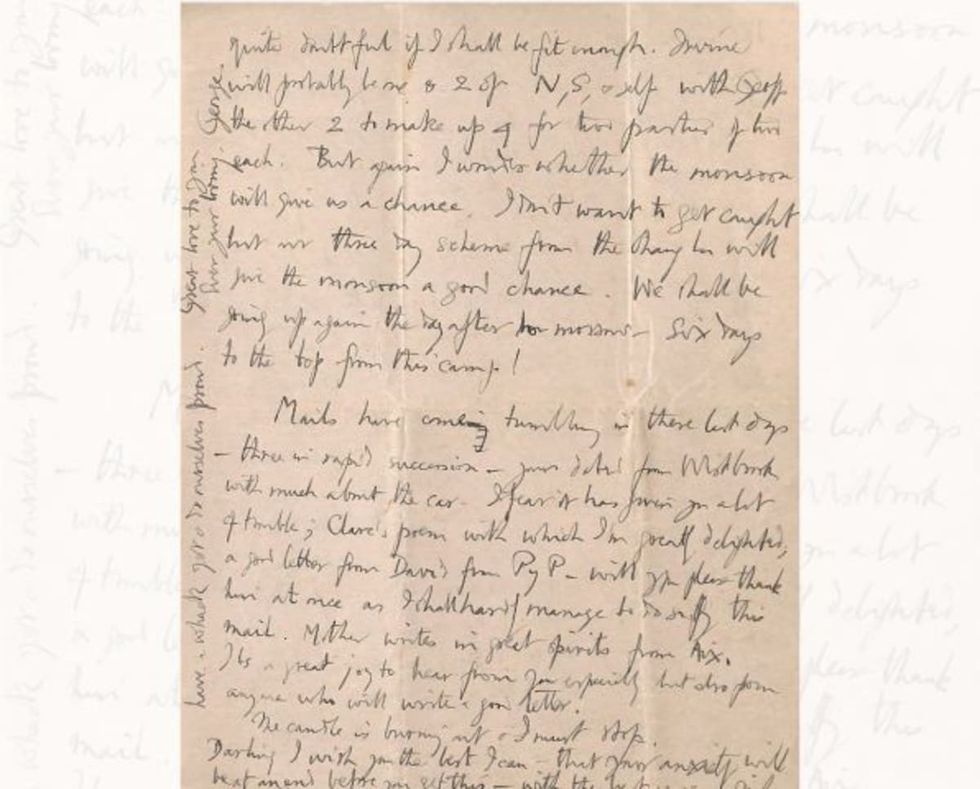 quite doubtful if I shall be fit enough. Irvine
will probably be one & 2 of N, S, & self with Geoff
the other 2 to make up 4 for two parties of two
each. But again I wonder whether the monsoon
will give us a chance. I don't want to get caught
but our three day scheme from the Chang La will
give the monsoon a good chance. We shall be
going up again the day after to morrow - Six days
to the top from this camp!
Mails have come tumbling in these last days
- three in rapid succession - yours dated from Westbrook
with much about the car. I fear it has given you a lot
of trouble; Clare's poem with which I'm greatly delighted;
a good letter from David from PyP - will you please thank
him at once as I shall hardly manage to do so by this
mail. Mother writes in great spirits from Aix.
It's a great joy to hear from you especially but also from
anyone who will write a good letter.
The candle is burning out & I must stop.
Darling I wish you the best I can - that your anxiety will
be at an end before you get this - with the best
have a whack for & do ourselves proud.
Great love to you
Ever your loving
George.